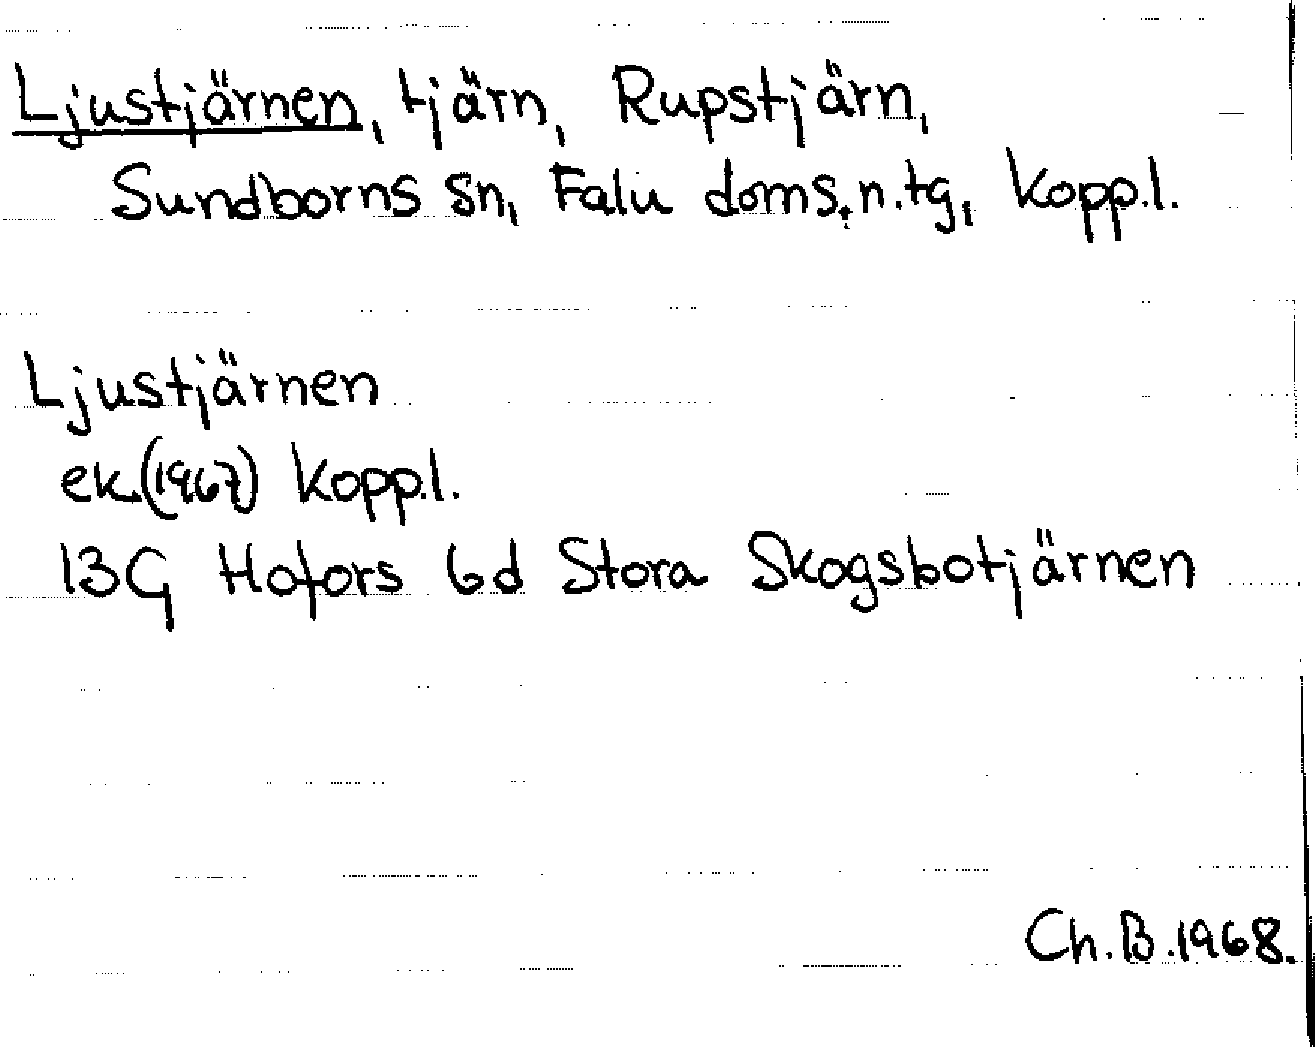 Ljustjärnen, tjärn, Rupstjärn,
Sundborns sn, Falu doms.n.tg, Kopp.l.
Ljustjärnen
ek.(1967) Kopp.l.
13G Hofors 6d Stora Skogsbotjärnen
Ch.B.1968.